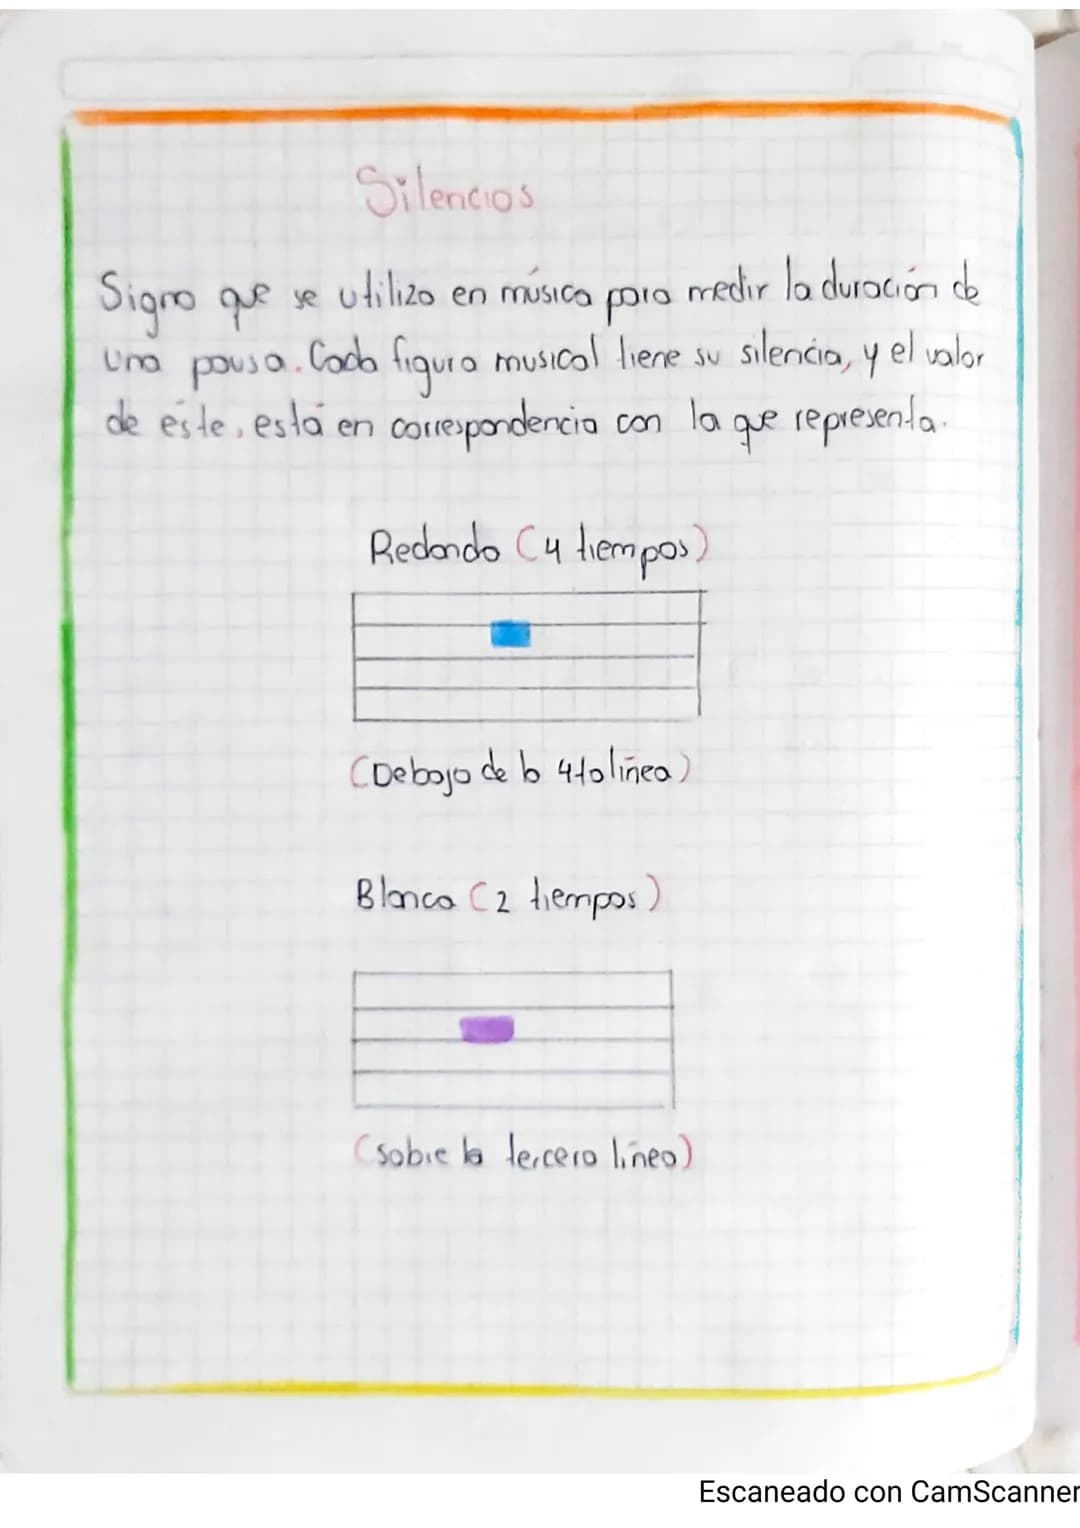 Silencios
Signo que se utiliza en música para medir la duración de
una pausa. Cada figura musical tiene su silencia, y el valor
de este, está en correspondencia con la que representa.
Redonda (4 tiempos)
(Debajo de la 4ta línea)
Blanca (2 tiempos)
(sobre la tercera línea)
Escaneado con CamScanner